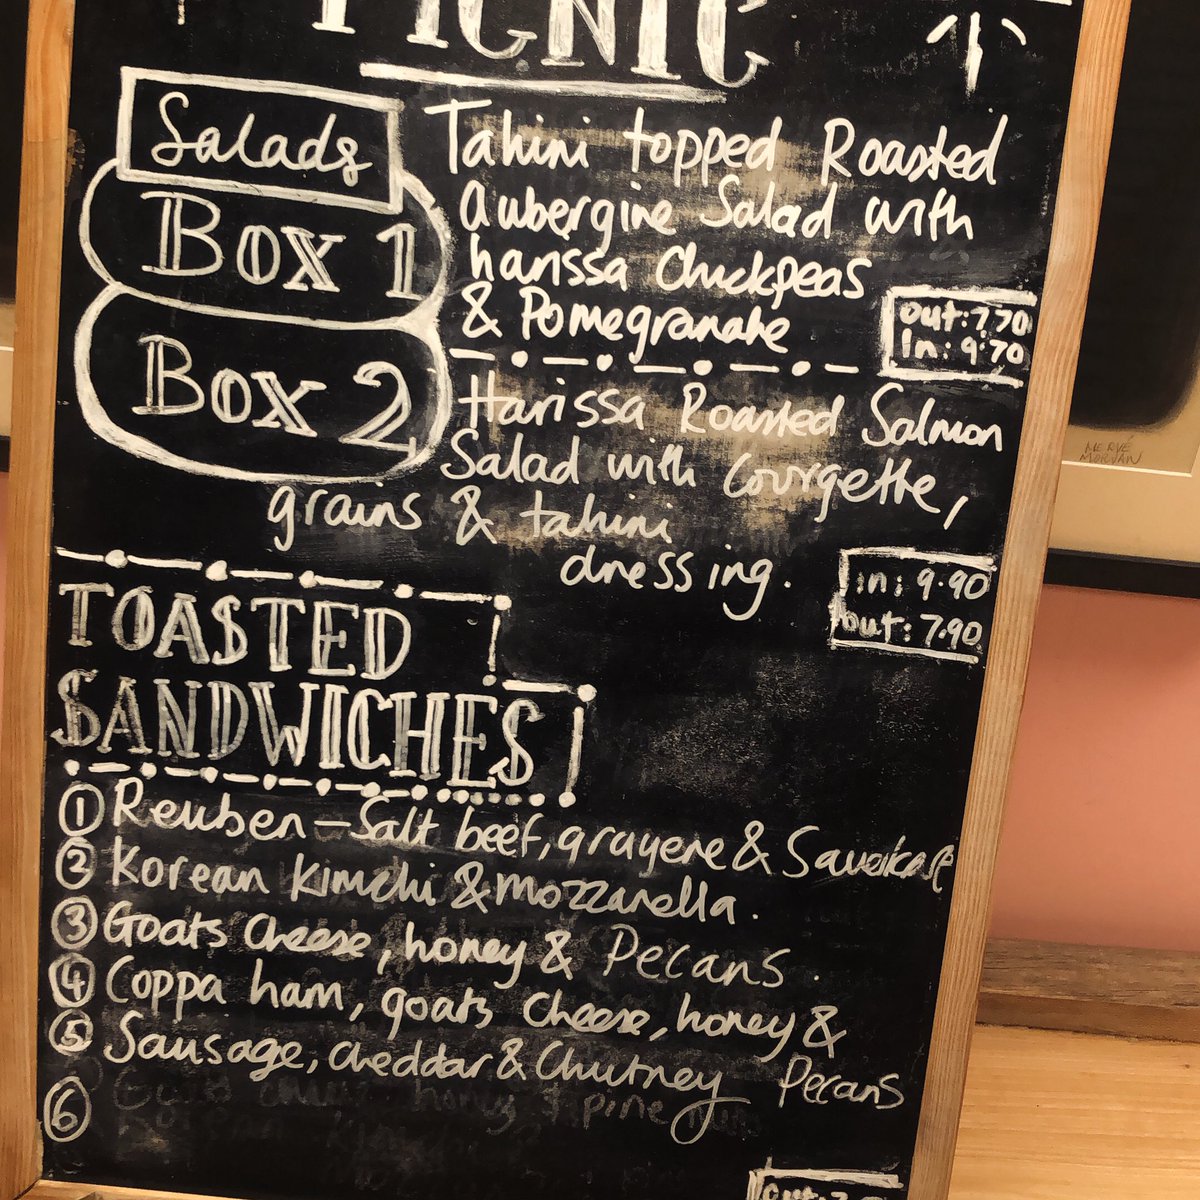 PICNIC
Salads
Box 1
Tahini topped Roasted
Aubergine Salad with
harissa Chickpeas
& Pomegranate
out: 7.70
In: 9.70
Box 2
Harissa Roasted Salmon
Salad with Courgette,
grains & tahini
dressing.
in: 9.90
out: 7.90
TOASTED
SANDWICHES
1 Reuben - Salt beef, gruyere &
2 Korean Kimchi & mozzarella.
3 Goats Cheese, honey & Pecans.
4 Coppa ham, goats cheese, honey &
Pecans
5 Sausage, cheddar & Chutney
6
MERVÉ
MORVAN